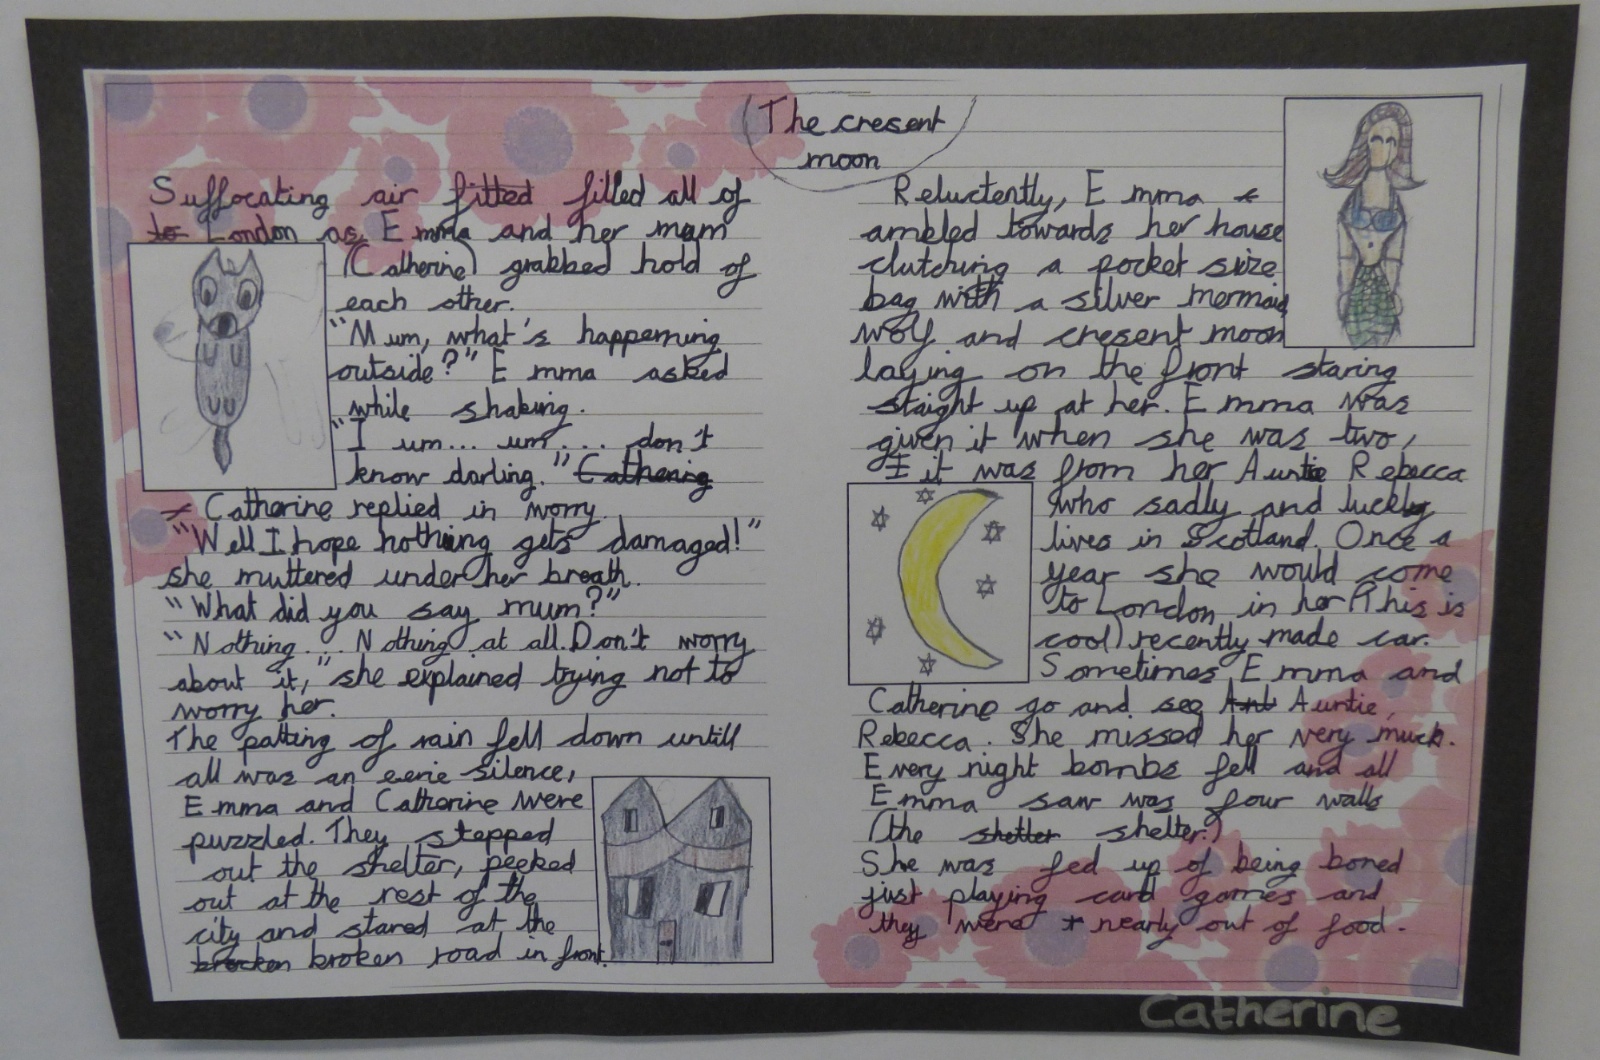 The cresent
moon
Suffocating air fitted filled all of
to London as Emma and her mum
(Catherine) grabbed hold of
each other.
"Mum, what's happerning
outside?" Emma asked
while shaking.
"I um... um... don't
know darling." Cathering
Catherine replied in worry.
"Well I hope nothing gets damaged!"
she muttered under her breath.
"What did you say mum?"
"Nothing... Nothing at all. Don't worry
about it," she explained trying not to
worry her.
The patting of rain fell down untill
all was an eerie silence,
Emma and Catherine were
puzzled. They stepped
out the shelter, peeked
out at the rest of the
city and stared at the
brocken broken road in front.
Reluctently, Emma
ambled towards her house
clutching a pocket size
bag with a silver mermaid
wolf and cresent moon
laying on the front staring
staight up at her. Emma was
given it when she was two,
I it was from her Auntie Rebecca
who sadly and luckly
lives in Scotland. Once a
year she would come
to London in her (This is
cool) recently made car.
Sometimes Emma and
Catherine go and see Ant Auntie,
Rebecca. She missed her very much.
Every night bombs fell and all
Emma saw was four walls
(the shetter shelter.)
She was fed up of being bored
just playing card games and
they were nearly out of food.
Catherine